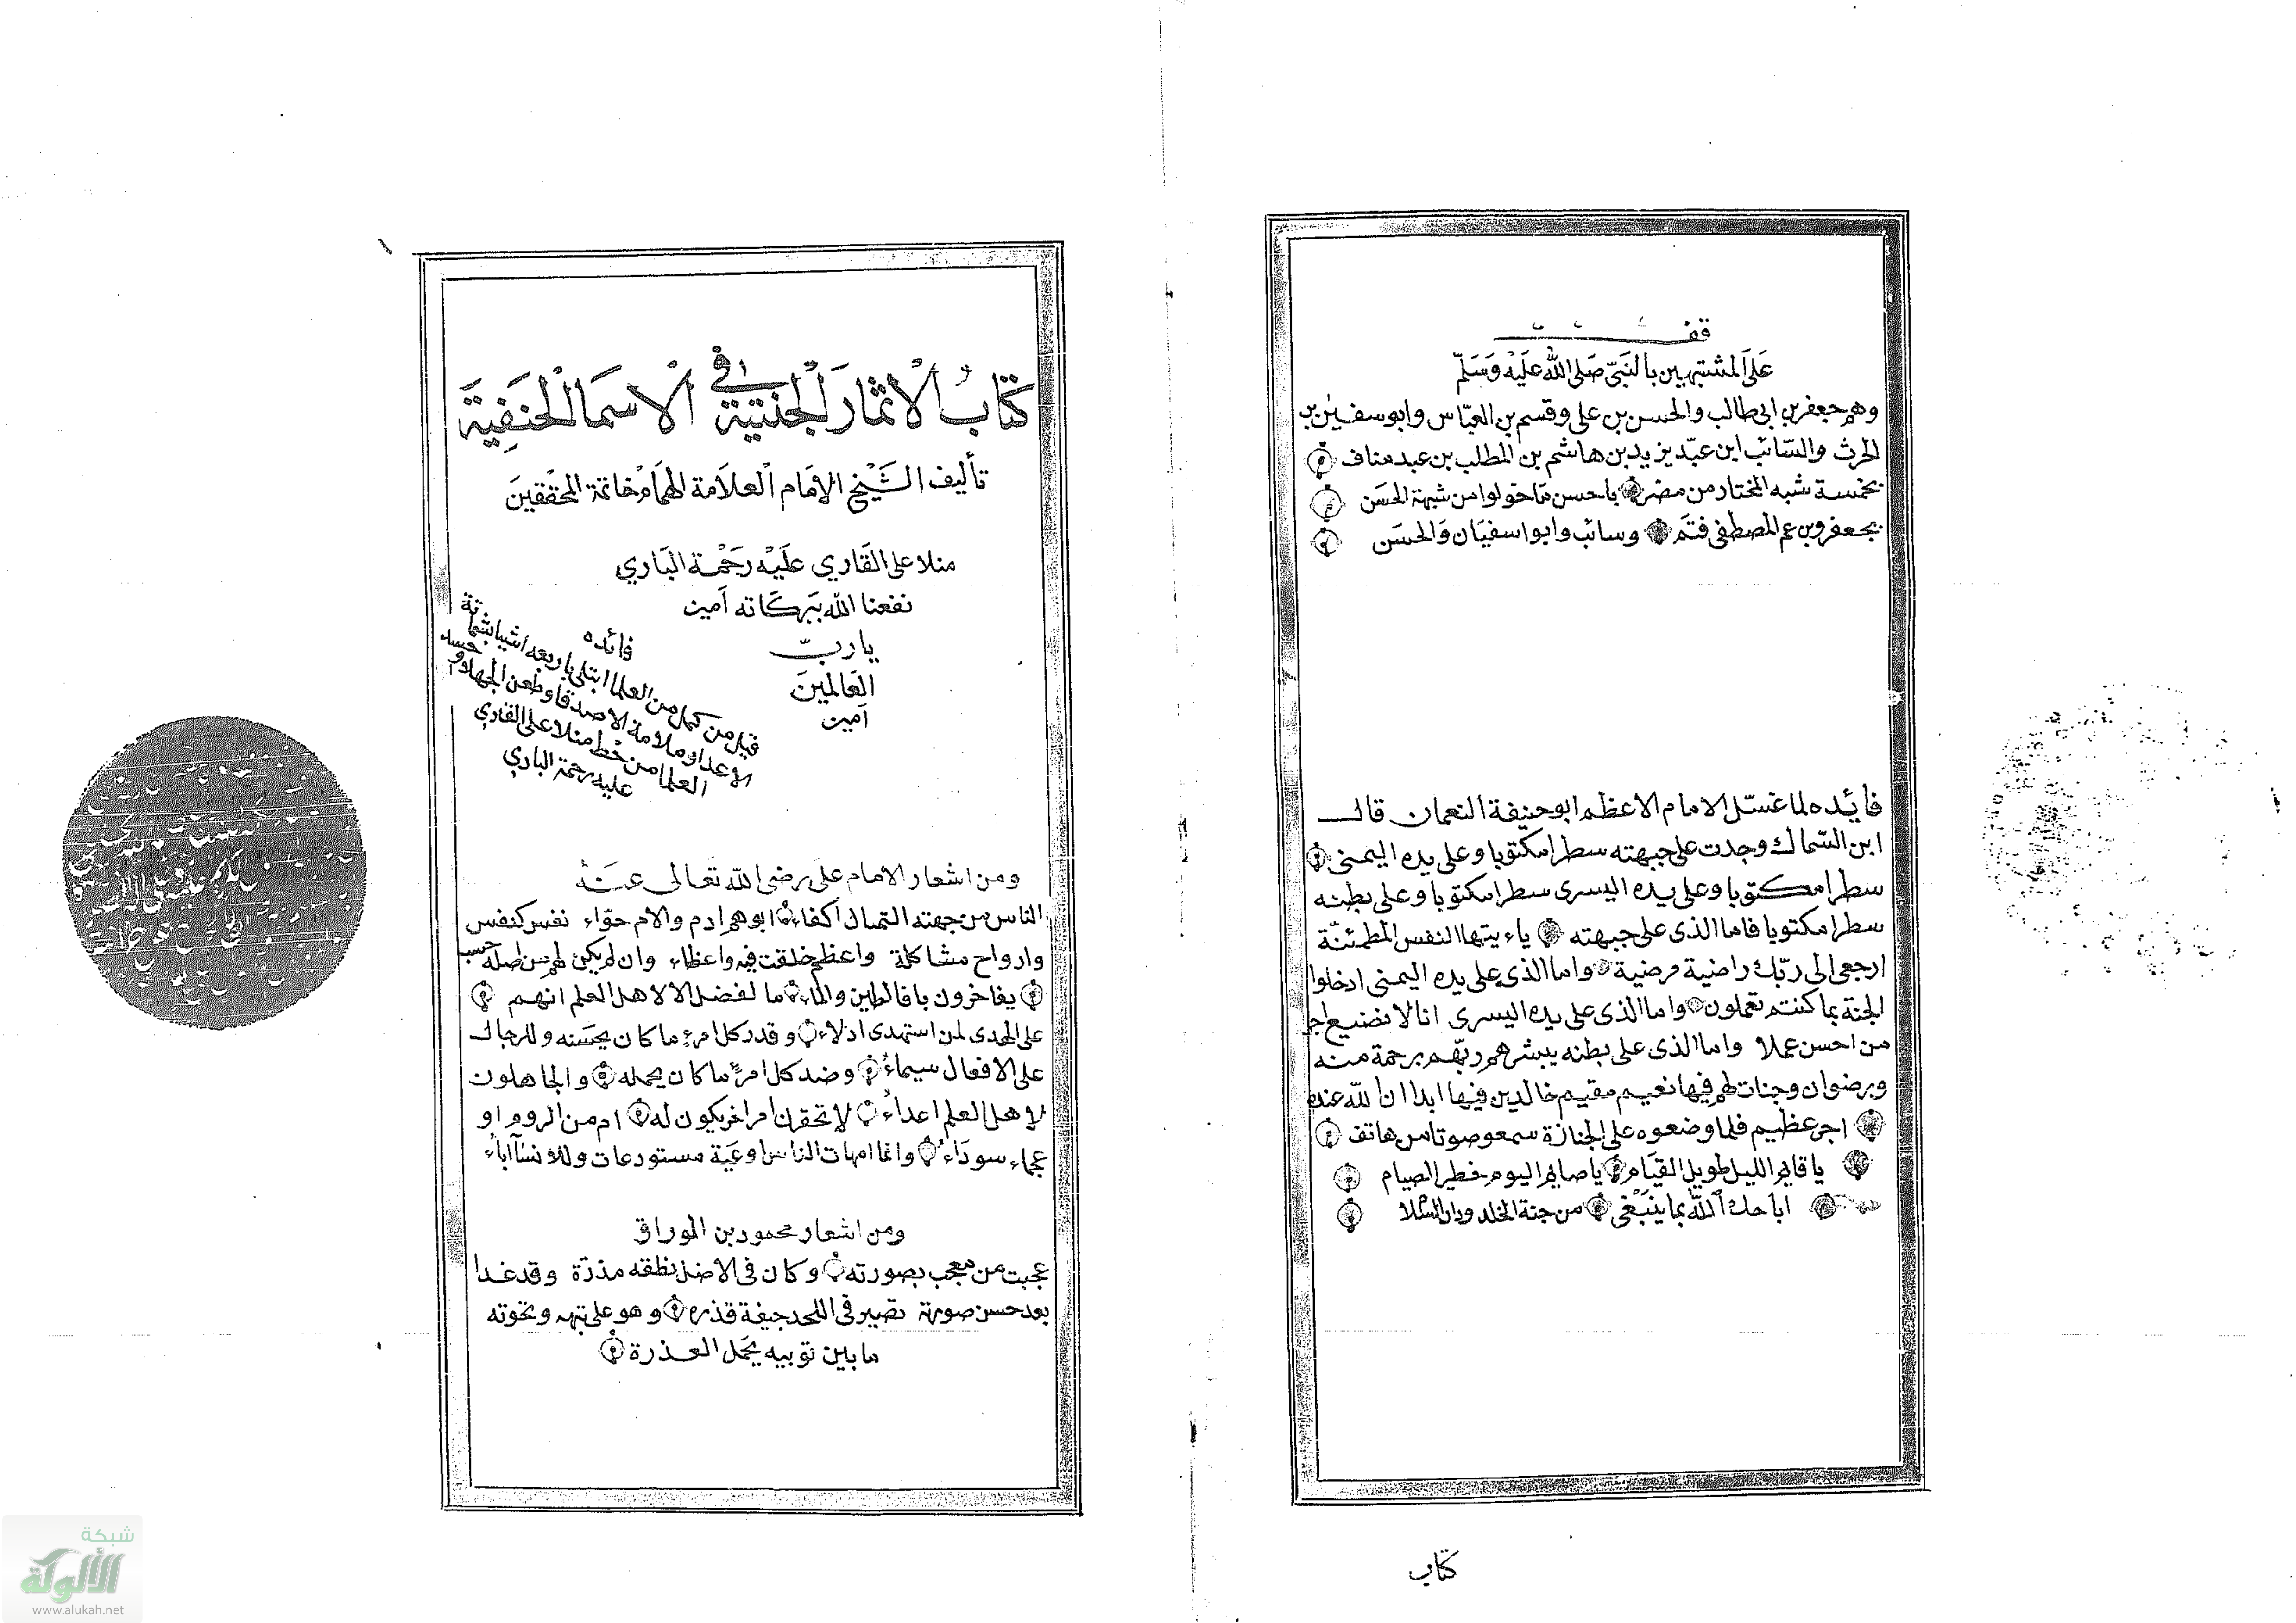 قف
على المشتبهين بالنبي صلى الله عليه وسلم
وهم جعفر بن ابى طالب والحسن بن على وقسم بن العباس وابو سفين بن
الحرث والسائب ابن عبد يزيد بن هاشم بن المطلب بن عبد مناف
بخمسة شبه المختار من مضر يا حسن ما خولوا من شبهة الحسن
بجعفر وبن عم المصطفى قثم وسائب وابوا سفيان والحسن
فايده لما غسل الامام الاعظم ابو حنيفة النعمان قال
ابن السماك وجدت على جبهته سطرا مكتوبا وعلى يده اليمنى
سطرا مكتوبا وعلى يده اليسرى سطرا مكتوبا وعلى بطنه
سطرا مكتوبا فاما الذى على جبهته ياءيتها النفس المطمئنة
ارجعى الى ربك راضية مرضية واما الذى على يده اليمنى ادخلوا
الجنة بما كنتم تعملون واما الذى على يده اليسرى انا لا نضيع اجر
من احسن عملا واما الذى على بطنه يبشرهم ربهم برحمة منه
وبرضوان وجنات لهم فيها نعيم مقيم خالدين فيها ابدا ان الله عنده
اجر عظيم فلما وضعوه على الجنازة سمعو صوتا من هاتف
يا قايم الليل طويل القيام يا صايم اليوم خطير الصيام
اباحك الله بما ينبغى من جنة الخلد ودار السلا
كتاب
كتاب الاثمار الجنتية في الاسما الحنفية
تأليف الشيخ الامام العلامة الهمام خاتمة المحققين
منلا على القاري عليه رحمة الباري
نفعنا الله ببركاته آمين
يارب
العالمين
آمين
فائده
قيل من كمل من العلما ابتلى باربعه اشيا شماتة
الاعدا وملامة الاصدقا وطعن الجهلا وحسد
العلما من خط منلا على القاري
عليه رحمة الباري
ومن اشعار الامام على رضى الله تعالى عنه
الناس من جهته التمثال اكفاء ابوهم ادم والام حواء نفس كنفس
وارواح مشاكلة واعظم خلقت فيه واعظاء وان لم يكن لهم من اصله حسب
يفاخرون به فالطين والماء ما لفضل الا لاهل العلم انهم
على الهدى لمن استهدى ادلاء وقدر كل امرء ما كان يحسنه وللرجال
على الافعال سيماء وضد كل امرء ما كان يجهله والجاهلون
لاهل العلم اعداء لا تحقرن امرا خر يكون له ام من الروم او
عجماء سوداء وانما امهات الناس اوعية مستودعات وللانسآ اباء
ومن اشعار محمود بن الوراق
عجبت من معجب بصورته وكان فى الاصل نطفه مذرة وقد غدا
بعد حسن صورته تصير فى اللحد جيفة قذره وهو على تيهه ونخوته
ما بين ثوبيه يحمل العذرة
شبكة
الألوكة
www.alukah.net